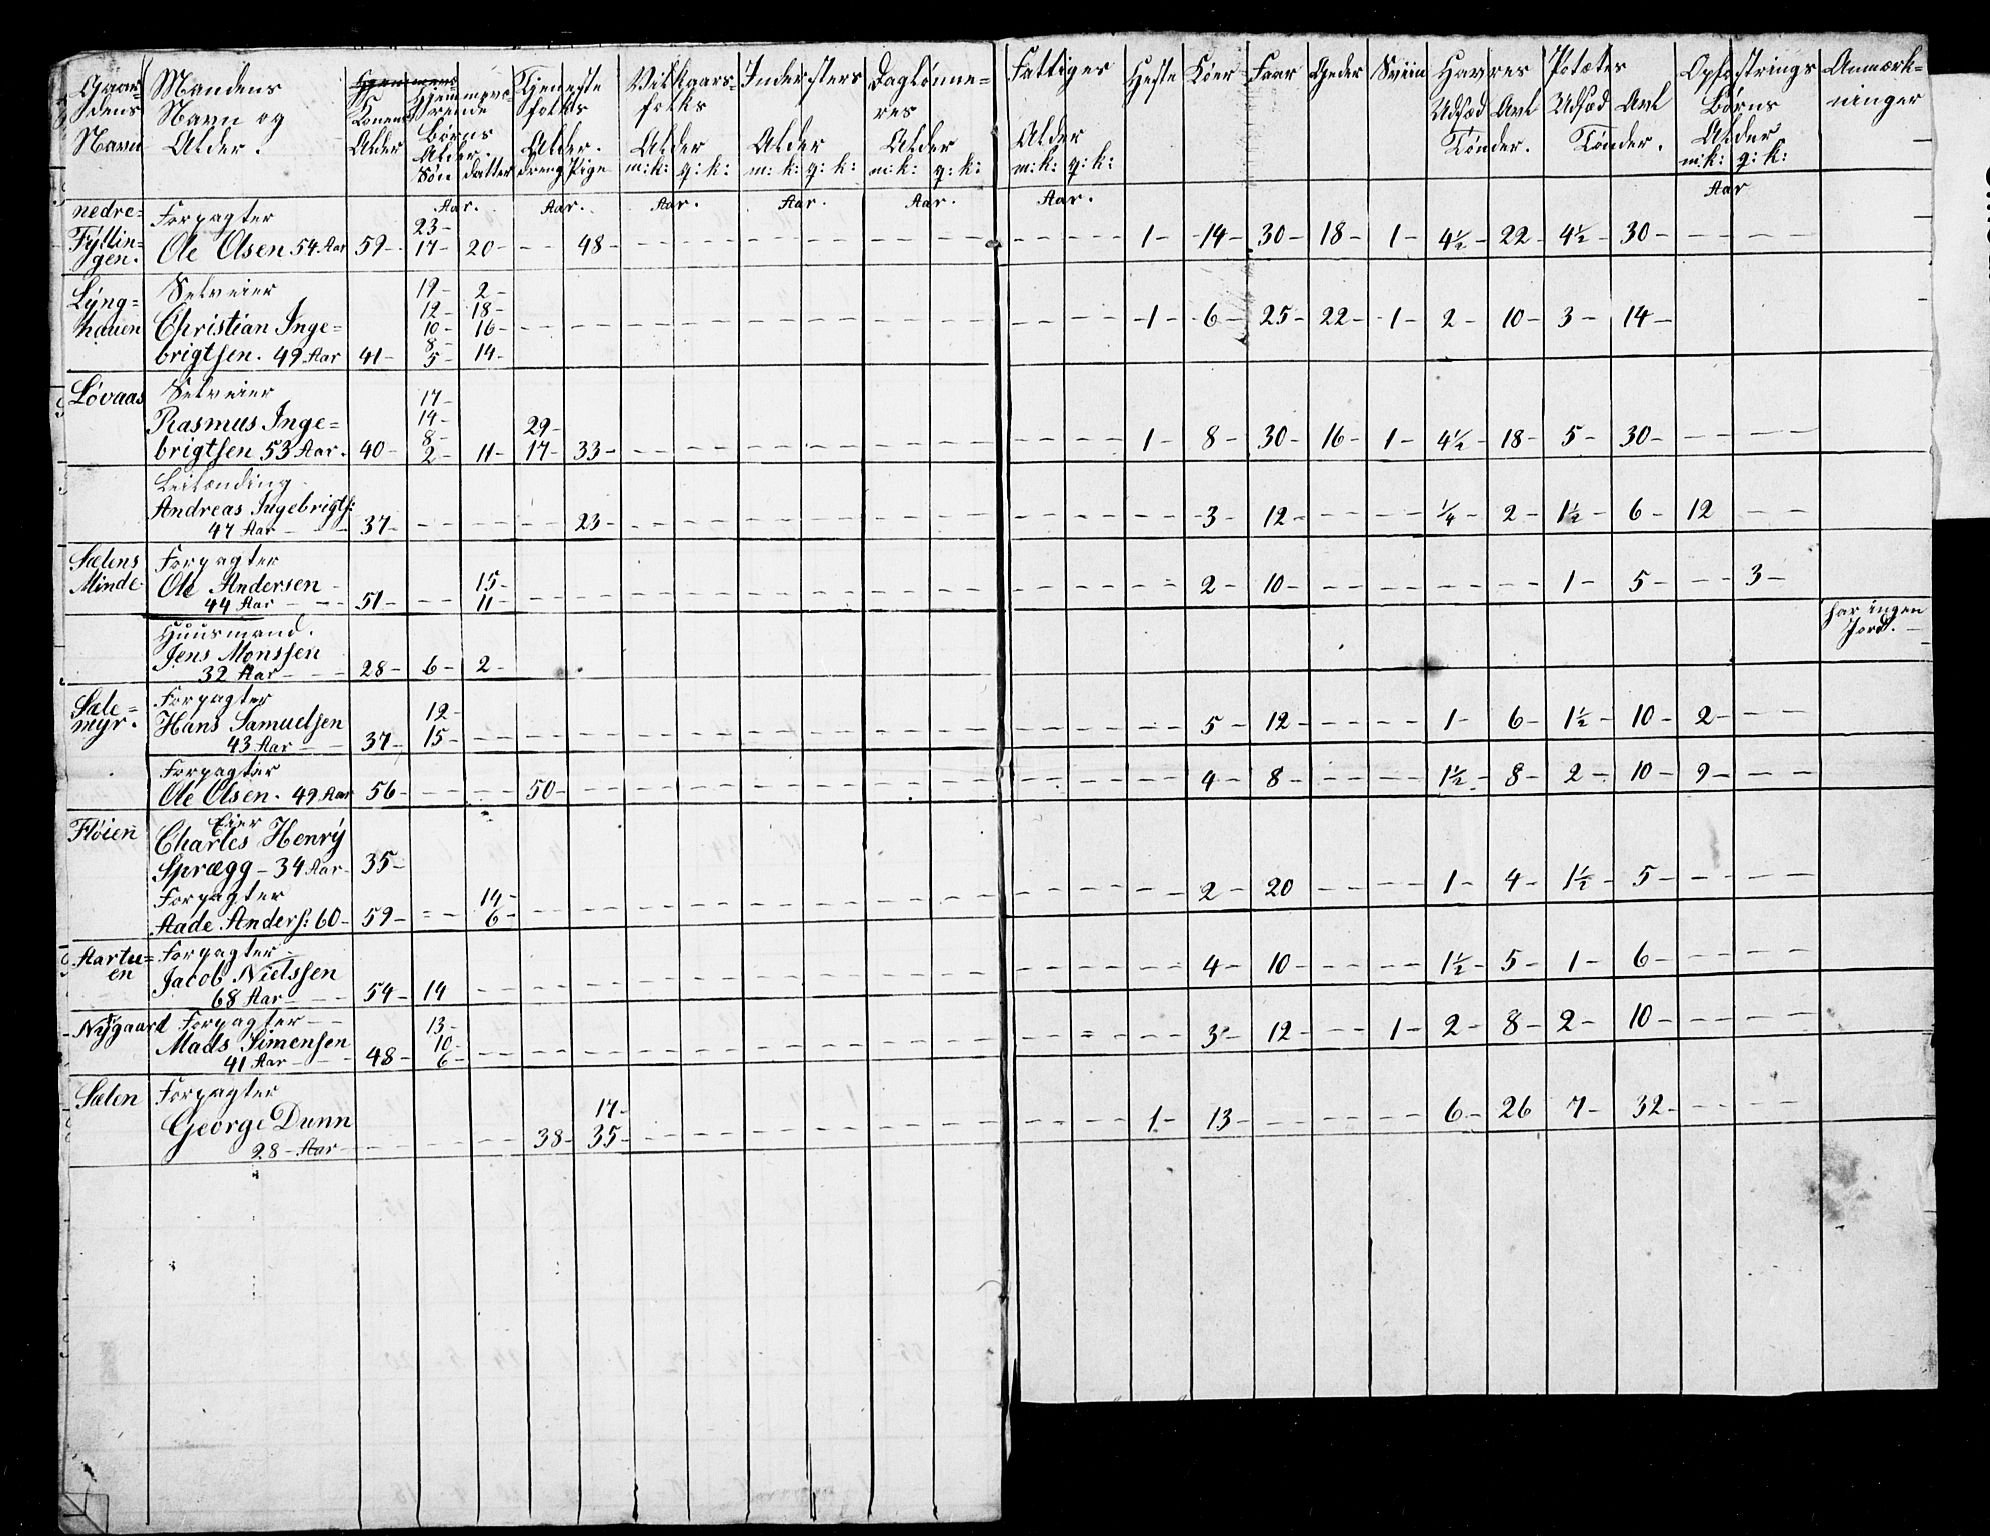 Gaar=
dens
Navn
Mandens
Navn og
Alder.
Konens
Alder
Hjemmevæ=
rende
Børns
Alder.
Søn datter
Tjeneste
folks
Alder.
Dreng Pige
Vilkaars=
folks
Alder
m:k: q:k:
Indersters
Alder
m:k: q:k:
Daglønne=
res
Alder
m:k: q:k:
Fattiges
Alder
m:k: q:k:
Heste
Køer
Faar
Geder
Sviin
Havres
Udsæd Avl
Tønder.
Potætes
Udsæd Avl
Tønder.
Opfostrings
Børns
Alder
m:k: q:k:
Anmærk=
ninger
Aar. Aar. Aar. Aar. Aar. Aar. Aar
nedre=
Fyllin=
gen.
Forpagter 23-
Ole Olsen 54 Aar 59- 17- 20- - - 48- 1- 14- 30- 18- 1- 4½- 22- 4½- 30-
Lyng=
hauen
Selveier 19- 2-
12- 18-
Christian Inge= 10- 16- 1- 6- 25- 22- 1- 2- 10- 3- 14-
8-
brigtsen. 49 Aar 41- 5- 14-
Løvaas
Selveier 17-
14-
Rasmus Inge= 8- 29-
brigtsen 53 Aar. 40- 2- 11- 17- 33- 1- 8- 30- 16- 1- 4½- 18- 5- 30-
Leilænding
Andreas Ingebrigts:
47 Aar 37- 23- 3- 12- ¼- 2- 1½- 6- 12
Sælens
Minde
Forpagter
Ole Andersen 15-
44 Aar 51- 11- 2- 10- 1- 5- 3-
Huusmand. har ingen
Jord.
Jens Monssen
32 Aar 28- 6- 2-
Sæle=
myr.
Forpagter
Hans Samuelsen 12-
43 Aar 37- 15- 5- 12- 1- 6- 1½- 10- 2-
Forpagter
Ole Olsen. 49 Aar 56- 50- 4- 8- 1½- 8- 2- 10- 9-
Fløien
Eier
Charles Henry
Sprægg - 34 Aar- 35-
Forpagter 14-
Aade Anders: 60- 59- 6- 2- 20 1- 4- 1½- 5-
Aartu=
en
Forpagter
Jacob Nielssen
68 Aar 54- 14 4- 10- 1½- 5- 1- 6-
Nygaard
Forpagter 13-
Mads Simensen 10-
41 Aar 48- 6- 3- 12- 1- 2- 8- 2- 10-
Sælen
Forpagter
George Dunn 17-
28-Aar 38- 35- 1- 13- 6- 26 7- 32-